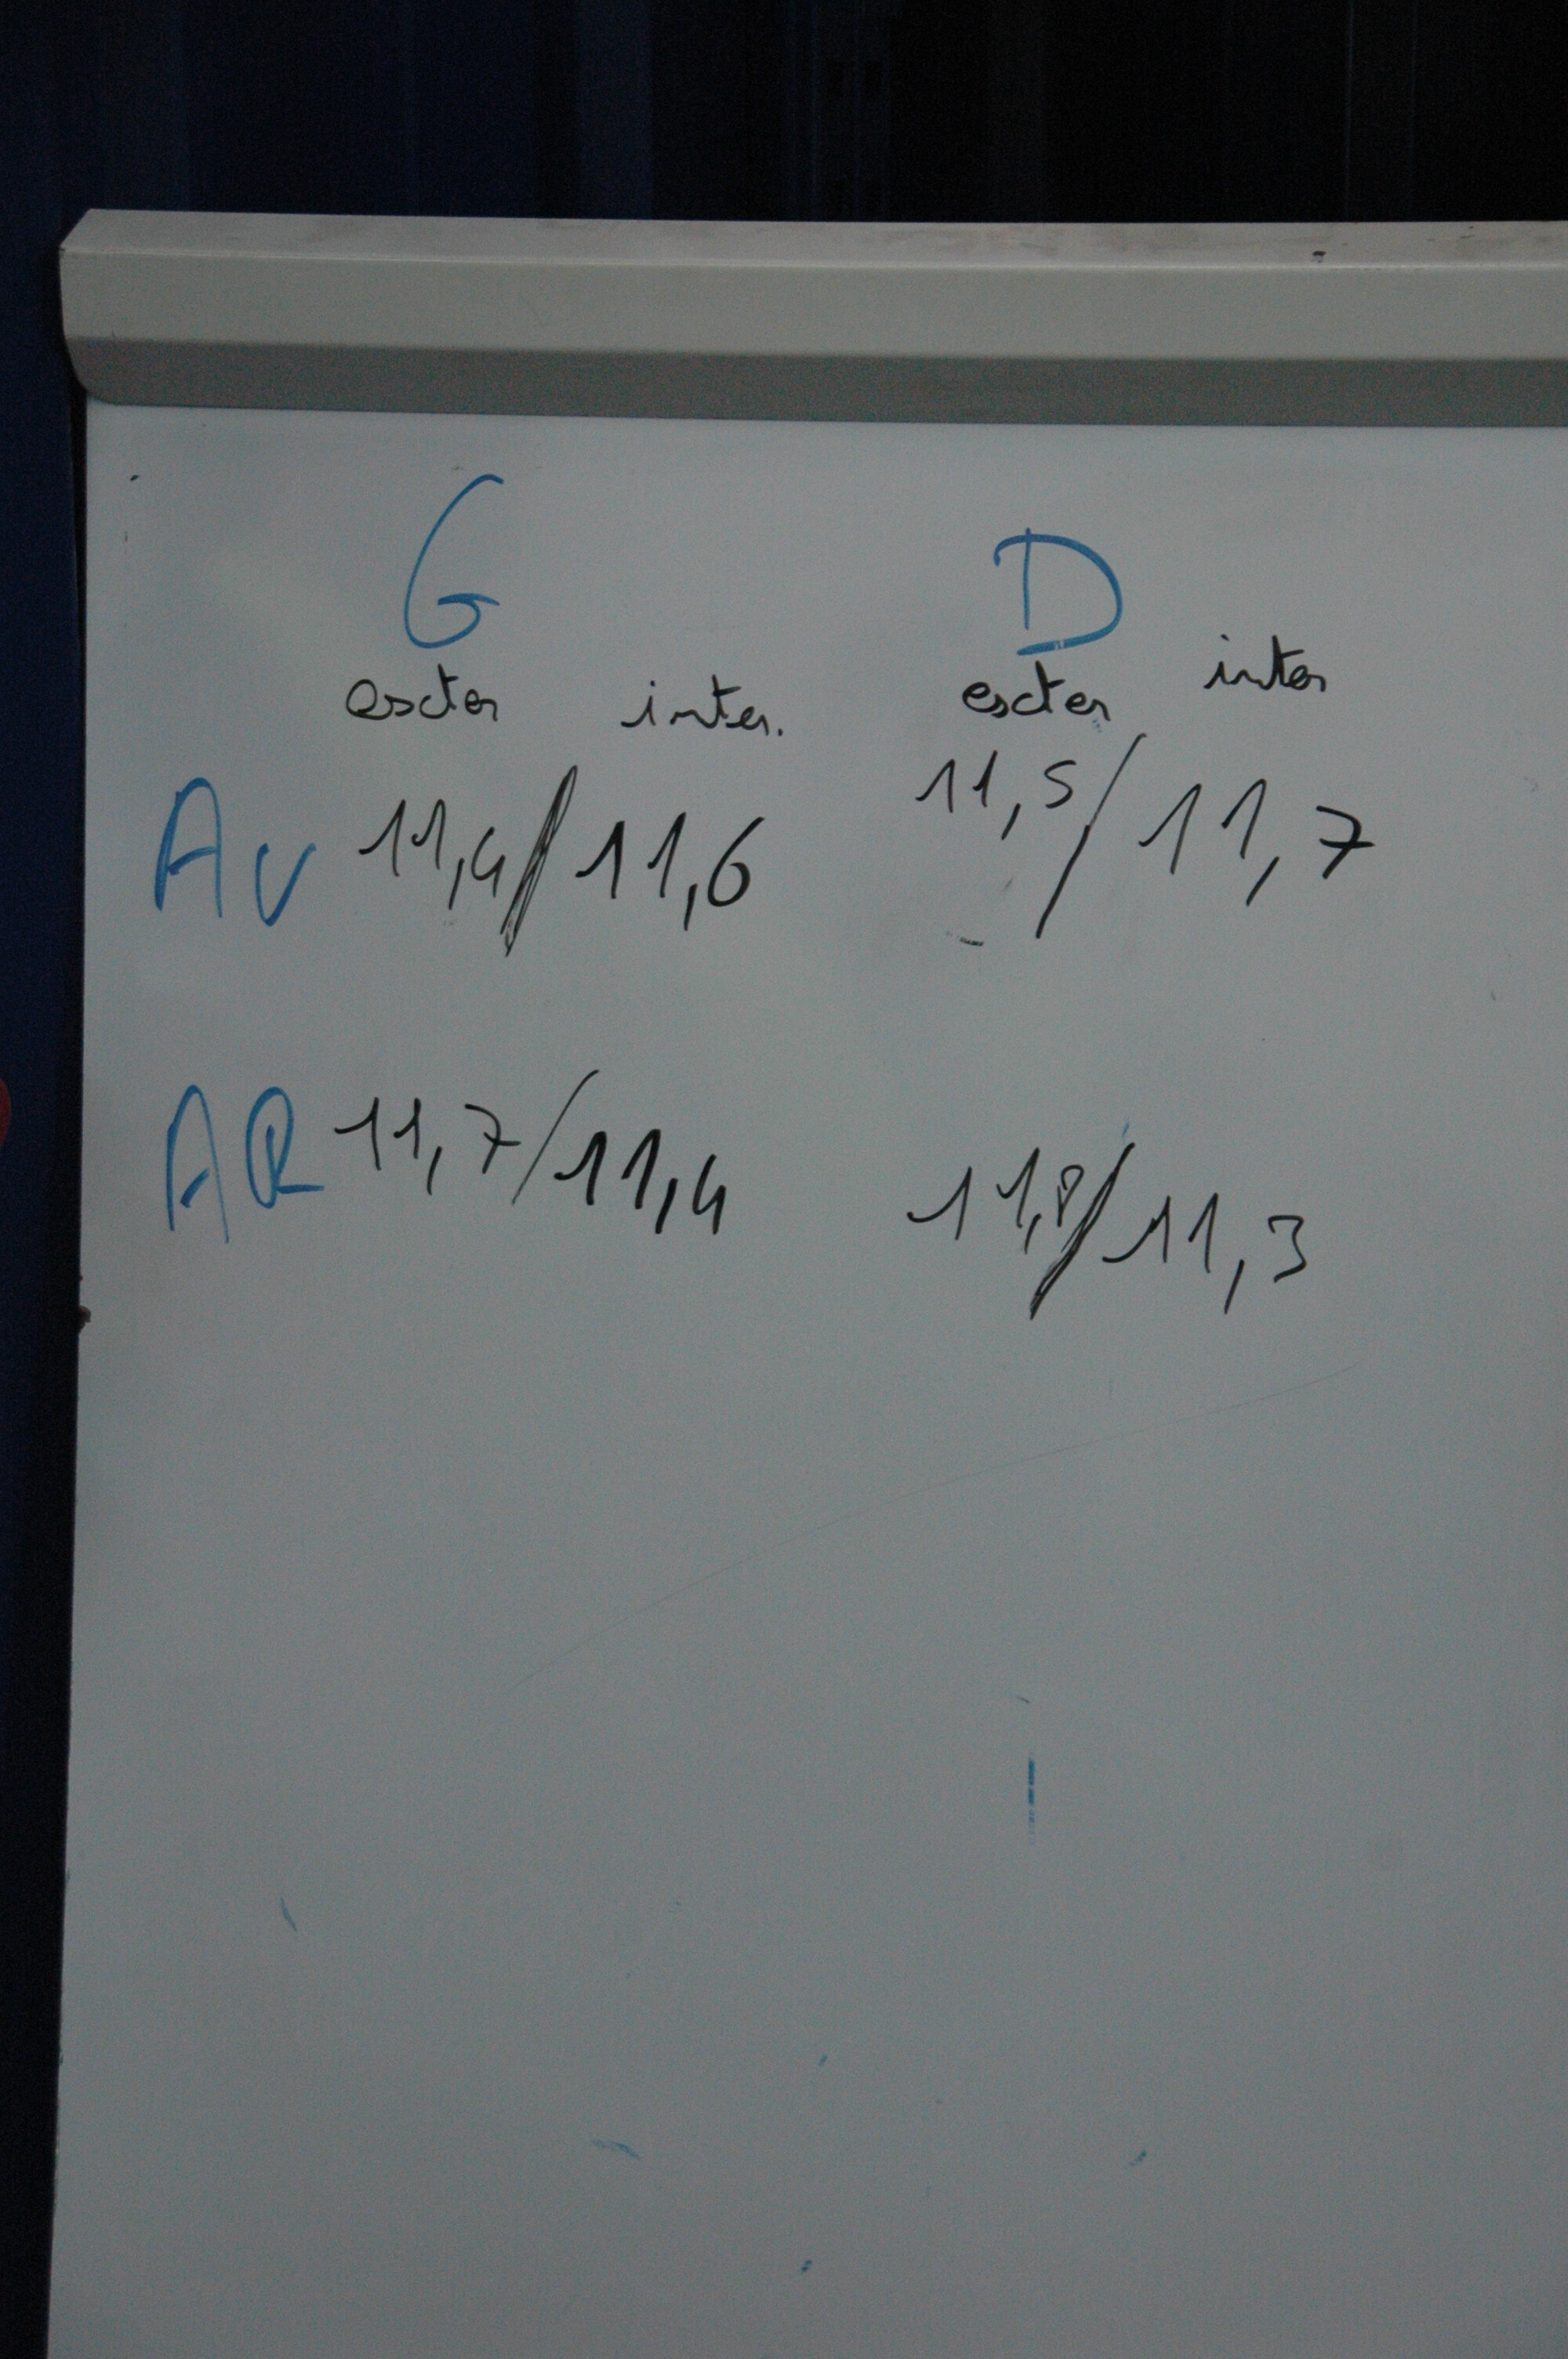 G D
exter inter. exter inter
Av 11,4/11,6 11,5/11,7
AR 11,7/11,4 11,8/11,3